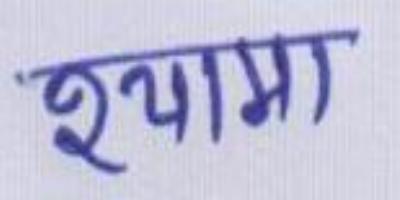 श्यामा